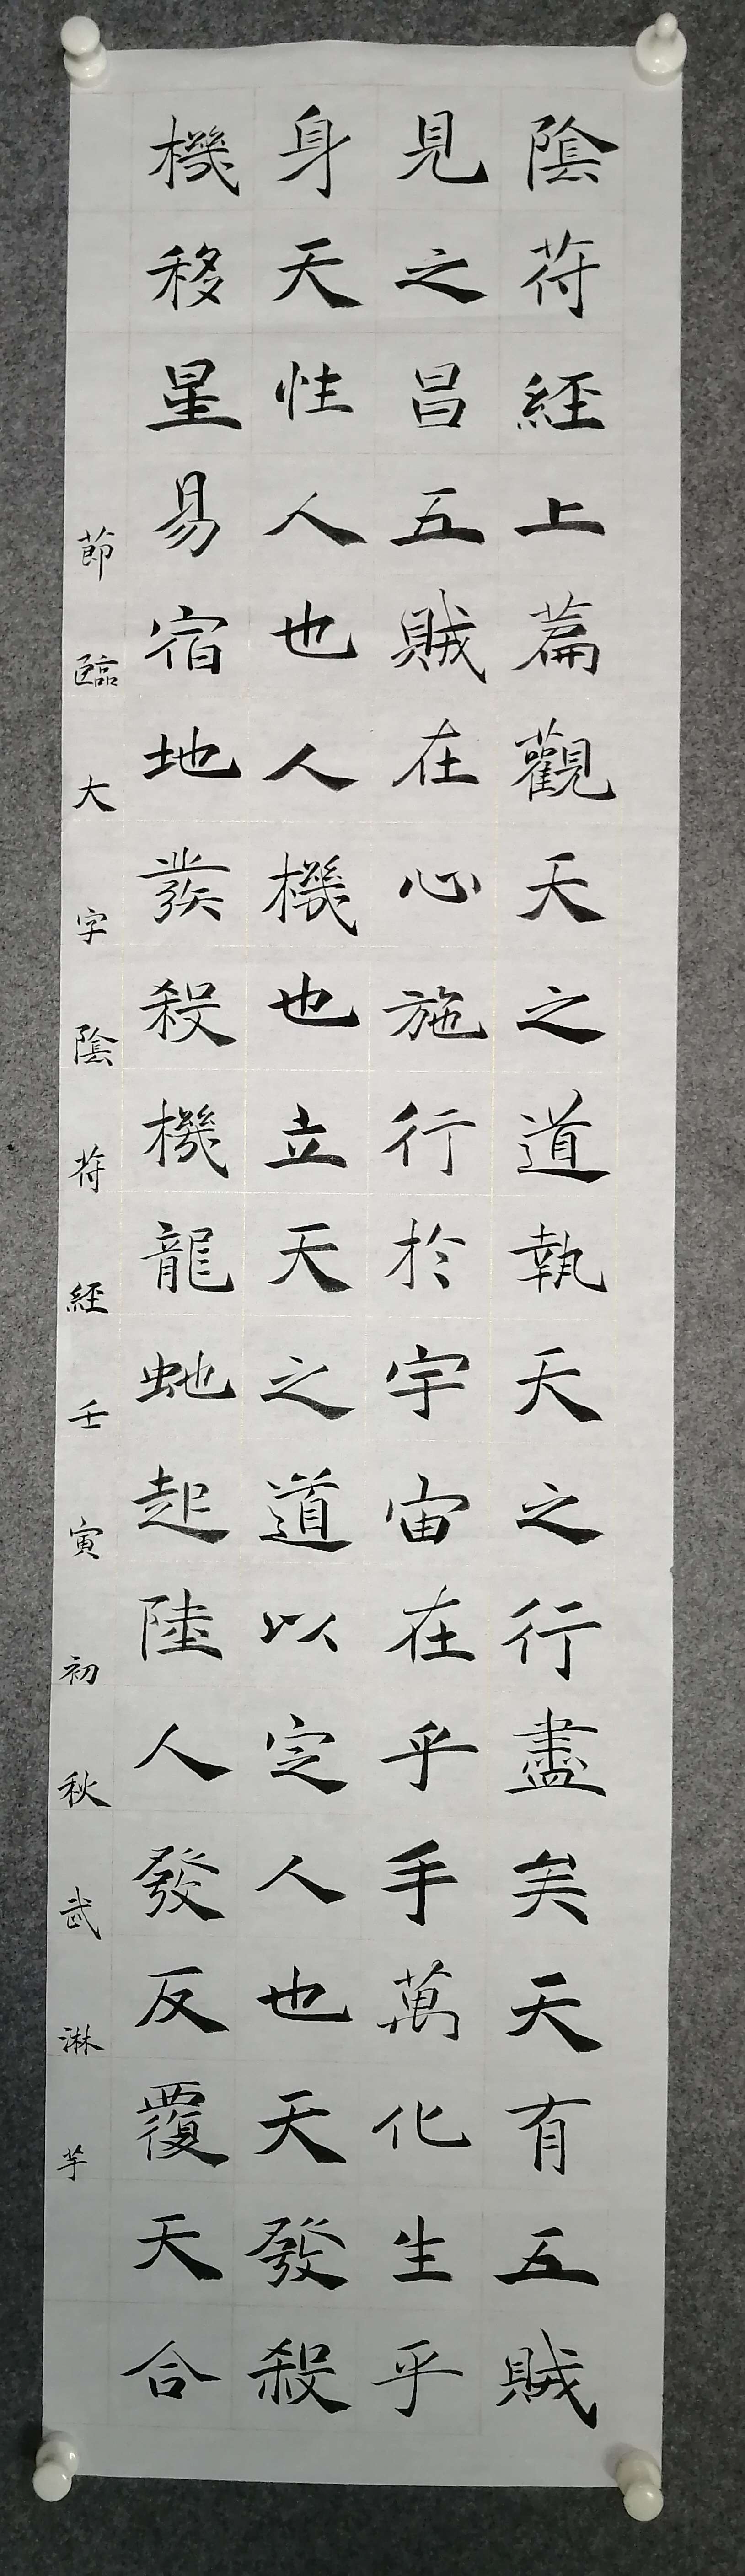 陰符經上篇觀天之道執天之行盡矣天有五賊
見之昌五賊在心施行於宇宙在乎手萬化生乎
身天性人也人機也立天之道以定人也天發殺
機移星易宿地發殺機龍虵起陸人發反覆天合
節臨大字陰符經壬寅初秋武淋芋